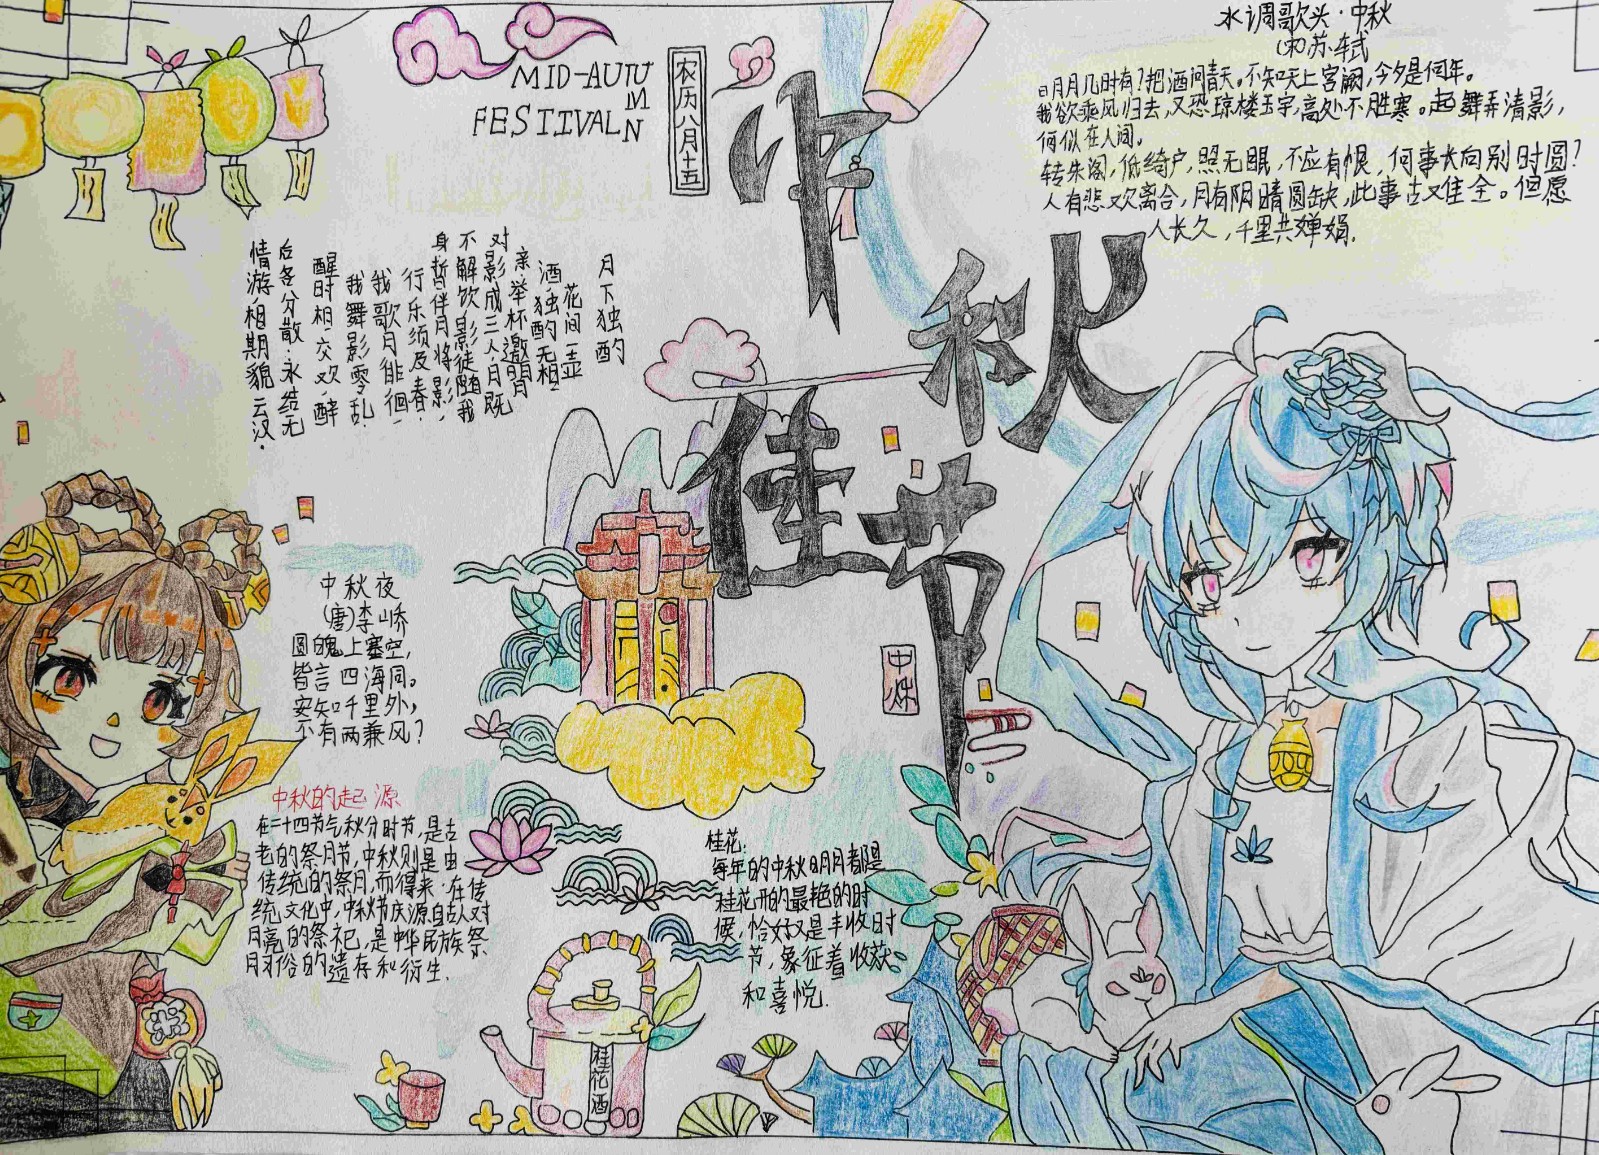 MID-AUTUMN
FESTIVAL
农历八月十五
中秋
佳节
水调歌头·中秋
(宋)苏·轼
明月几时有?把酒问青天。不知天上宫阙,今夕是何年。
我欲乘风归去,又恐琼楼玉宇,高处不胜寒。起舞弄清影,
何似在人间。
转朱阁,低绮户,照无眠,不应有恨,何事长向别时圆?
人有悲欢离合,月有阴晴圆缺,此事古难全。但愿
人长久,千里共婵娟.
月下独酌
花间一壶
酒独酌无相
亲·举杯邀明月
对影成三人·月既
不解饮影徒随我
身暂伴月将影,
行乐须及春·
我歌月徘徊
我舞影零乱
醒时相交欢·醉
后各分散·永结无
情游·相期貌云汉·
中秋夜
(唐)李峤
圆魄上寒空,
皆言四海同。
安知千里外,
不有两兼风?
中秋
中秋的起源
在二十四节气秋分时节,是古
老的祭月节,中秋则是由
传统的祭月,而得来·在传
统文化中,中秋节庆源自古人对
月亮的祭祀,是中华民族祭
月习俗的遗存和衍生.
桂花:
每年的中秋明月都是
桂花开的最艳的时
候,恰好又是丰收时
节,象征着收获
和喜悦.
桂花酒